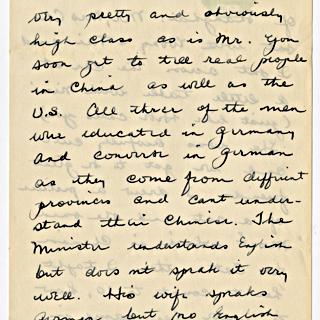 very pretty and obviously
high class as is Mr. You
soon get to tell real people
in China as well as the
U.S. All three of the men
were educated in Germany
and converse in German
as they come from different
provinces and cant under-
stand their Chinese. The
Minister understands English
but does n't speak it very
well. His wife speaks
German but no English